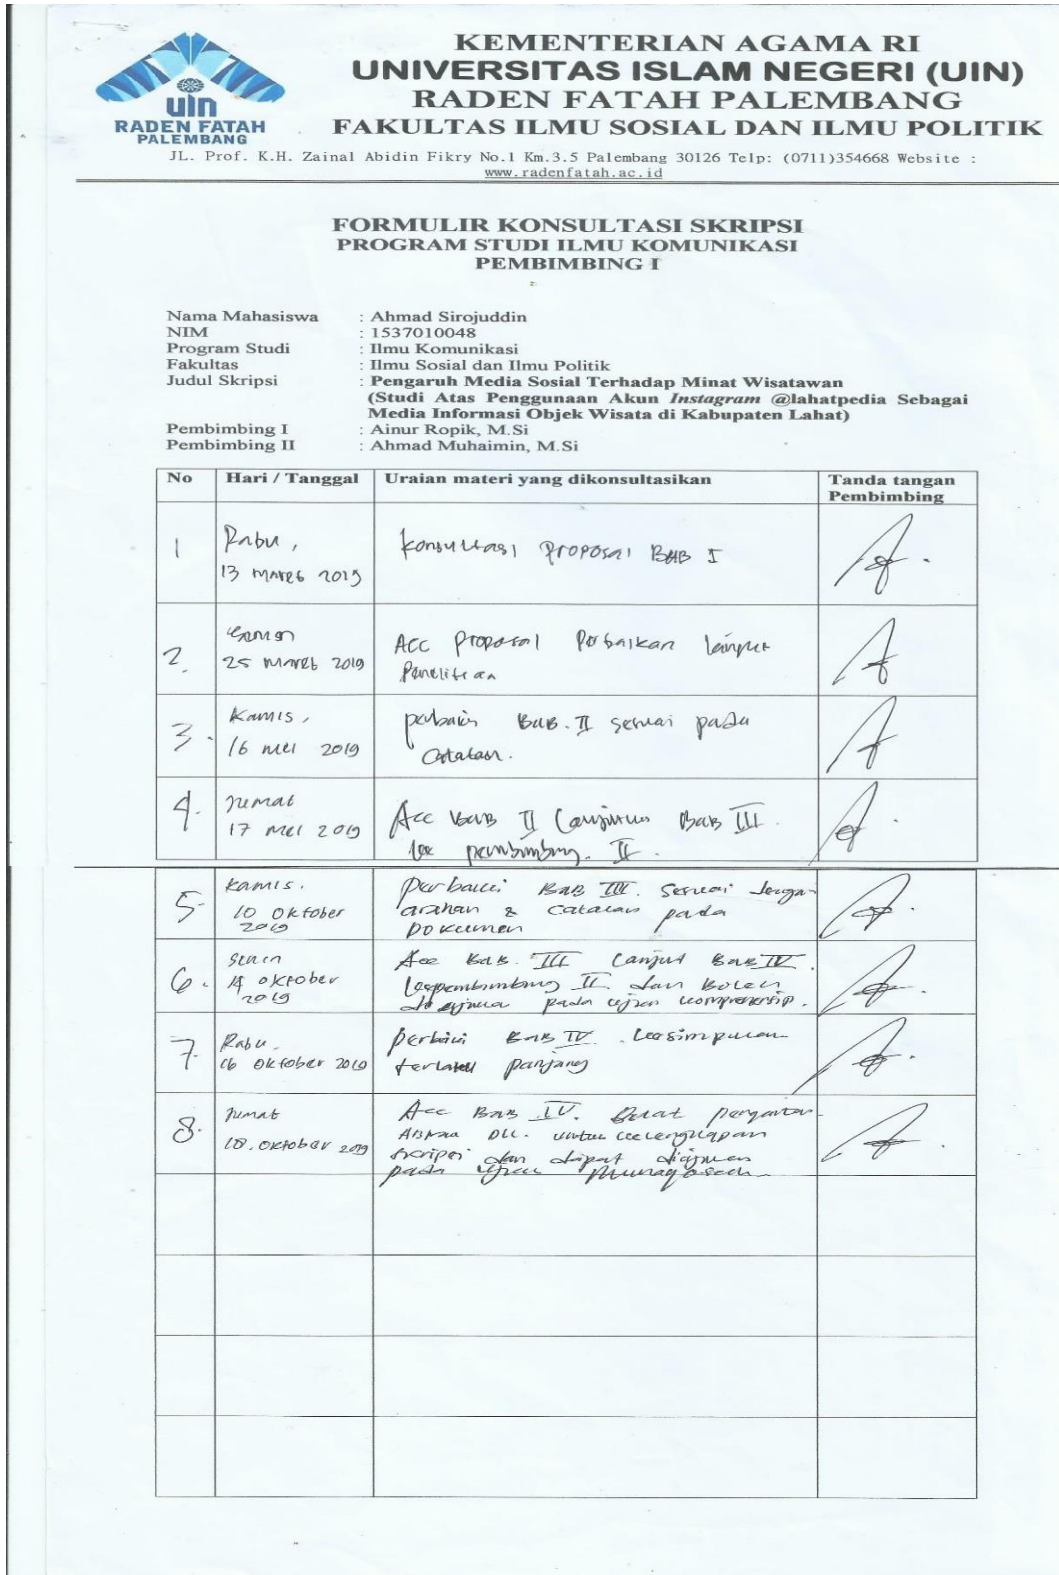 uin
RADEN FATAH
PALEMBANG
KEMENTERIAN AGAMA RI
UNIVERSITAS ISLAM NEGERI (UIN)
RADEN FATAH PALEMBANG
FAKULTAS ILMU SOSIAL DAN ILMU POLITIK
JL. Prof. K.H. Zainal Abidin Fikry No.1 Km.3.5 Palembang 30126 Telp: (0711)354668 Website :
www.radenfatah.ac.id
FORMULIR KONSULTASI SKRIPSI
PROGRAM STUDI ILMU KOMUNIKASI
PEMBIMBING I
Nama Mahasiswa : Ahmad Sirojuddin
NIM : 1537010048
Program Studi : Ilmu Komunikasi
Fakultas : Ilmu Sosial dan Ilmu Politik
Judul Skripsi : Pengaruh Media Sosial Terhadap Minat Wisatawan
(Studi Atas Penggunaan Akun Instagram @lahatpedia Sebagai
Media Informasi Objek Wisata di Kabupaten Lahat)
Pembimbing I : Ainur Ropik, M.Si
Pembimbing II : Ahmad Muhaimin, M.Si
No Hari / Tanggal Uraian materi yang dikonsultasikan Tanda tangan
Pembimbing
1 Rabu, Konsultasi Proposal BAB I
13 Maret 2019
2. Senin Acc Proposal Perbaikan
25 Maret 2019 Penelitian
3. Kamis, perbaiki Bab. II sesuai pada
16 Mei 2019 Catatan.
4. Jumat Acc Bab II Lanjutkan Bab III.
17 Mei 2019 ke pembimbing. II.
5. Kamis. Perbaiki Bab III. Sesuai dengan
10 Oktober arahan & Catatan pada
2019 Dokumen
6. Senin Acc Bab. III Lanjut Bab IV.
14 Oktober kepembimbing II. dan Boleh
2019 pada ujian komprehensip.
7. Rabu. perbaiki Bab IV. kesimpulan
16 Oktober 2019 terlalu panjang
8. Jumat Acc Bab IV. Buat pengantar
18. Oktober 2019 Dll. untuk kelengkapan
skripsi dan dapat diajukan
pada ujian Munaqosah